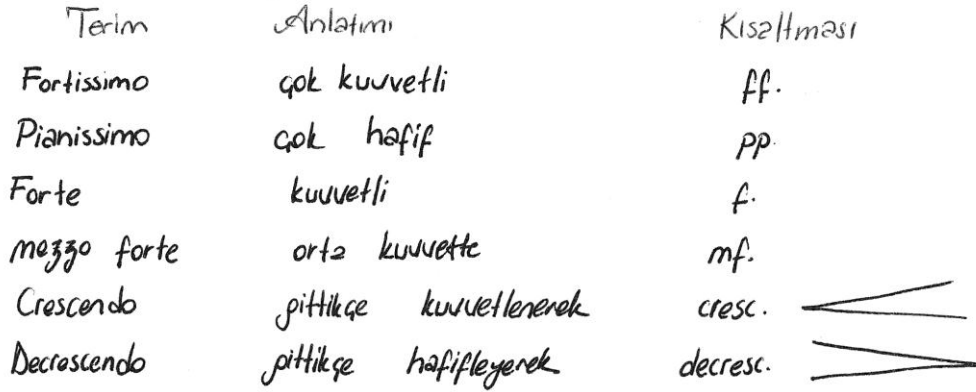 Terim Anlatımı Kısaltması
Fortissimo çok kuvvetli ff.
Pianissimo çok hafif pp.
Forte kuvvetli f.
mezzo forte orta kuvvette mf.
Crescendo gittikçe kuvvetlenerek cresc.
Decrescendo gittikçe hafifleyerek decresc.